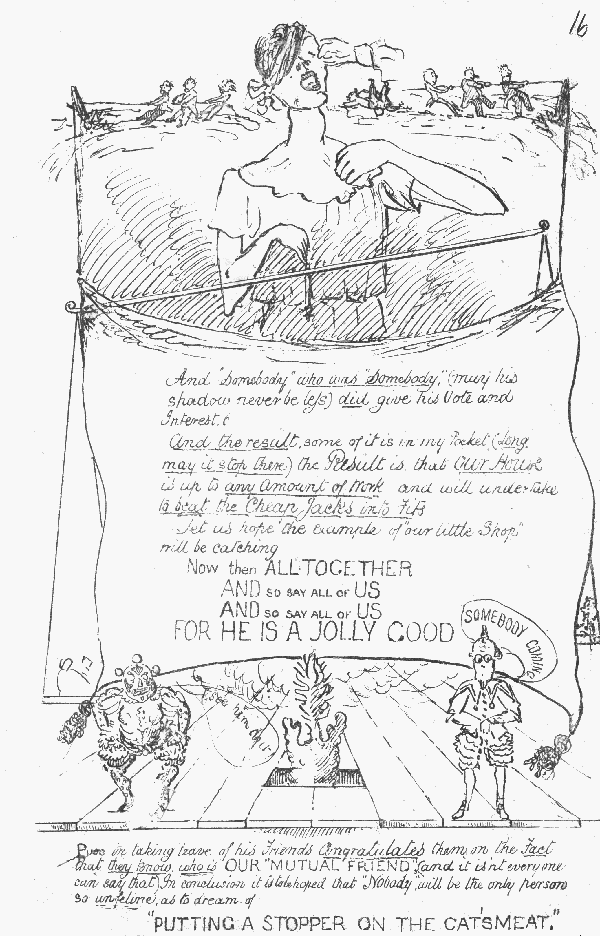 16
And "Somebody" who was "Somebody," (may his
shadow never be less) did give his Vote and
Interest.
And the result, some of it is in my Pocket (long
may it stop there) the Result is, that Our House
is up to any Amount of Work and will undertake
to beat the "Cheap Jacks into Fits
Let us hope the example of "our little Shop"
will be catching
Now then ALL TOGETHER
AND SO SAY ALL OF US
AND SO SAY ALL OF US
FOR HE IS A JOLLY GOOD
SOMEBODY COMING
Puss in taking leave of his Friends Congratulates them on the Fact
that they know who is OUR "MUTUAL FRIEND" (and it isnt everyone
can say that) In conclusion it is to be hoped that "Nobody" will be the only person
so unfeline, as to dream of
"PUTTING A STOPPER ON THE CAT'SMEAT."